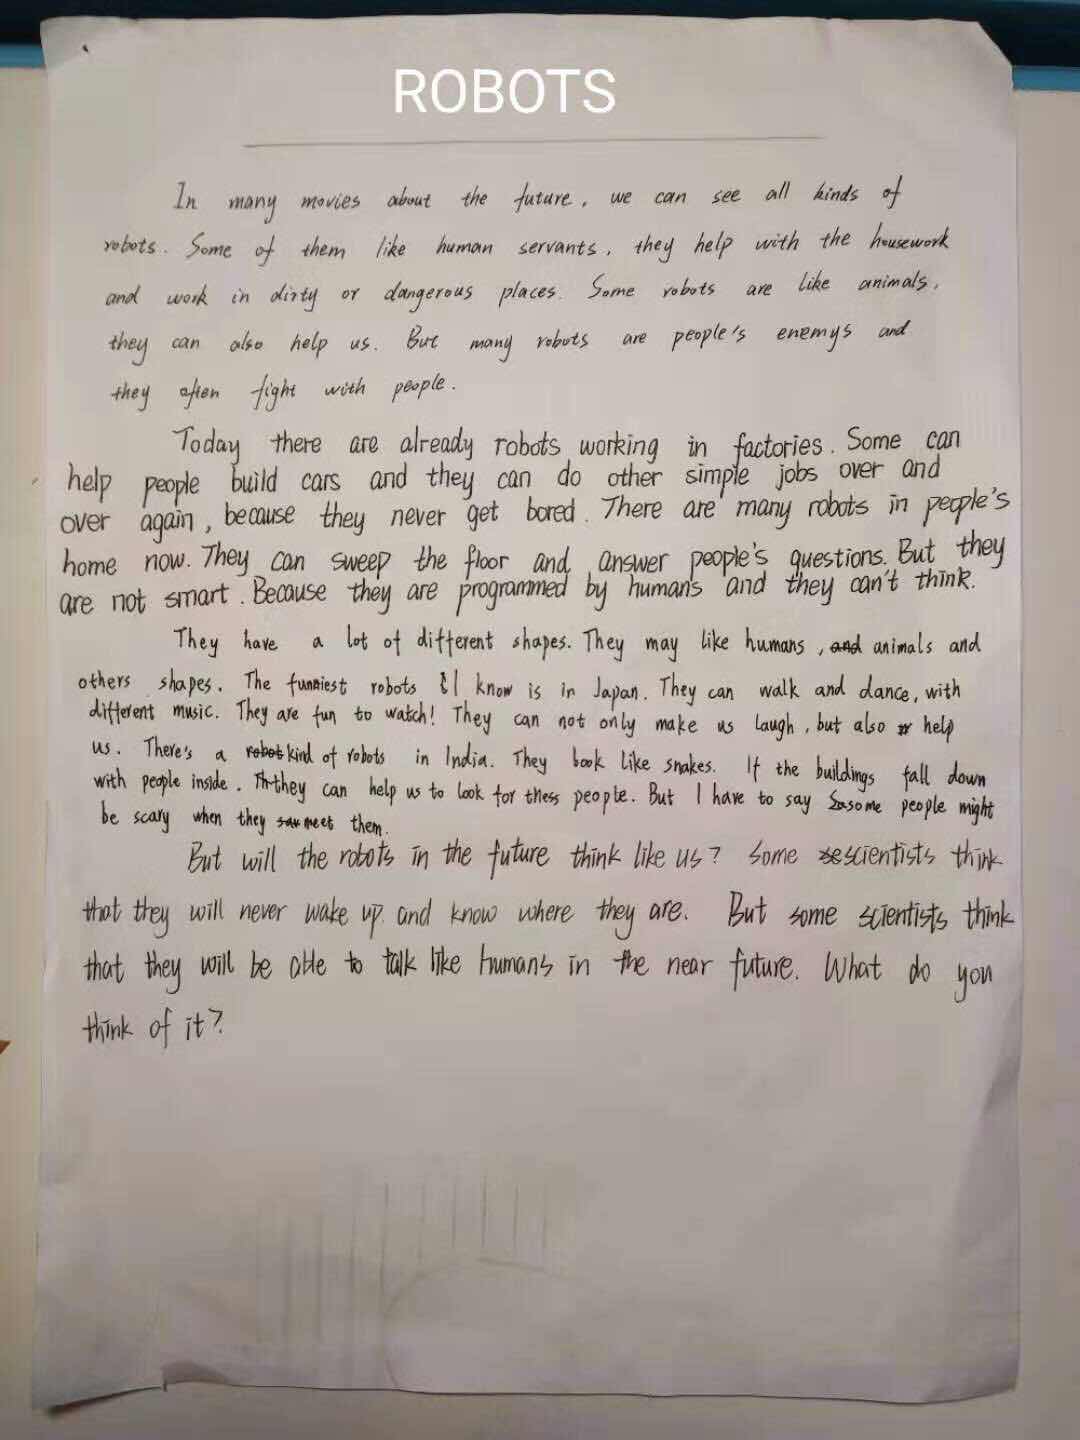 ROBOTS
In many movies about the future, we can see all kinds of
robots. Some of them like human servants, they help with the housework
and work in dirty or dangerous places. Some robots are like animals,
they can also help us. But many robots are people's enemys and
they often fight with people.
Today there are already robots working in factories. Some can
help people build cars and they can do other simple jobs over and
over again, because they never get bored. There are many robots in people's
home now. They can sweep the floor and answer people's questions. But they
are not smart. Because they are programmed by humans and they can't think.
They have a lot of different shapes. They may like humans, and animals and
others shapes. The funniest robots I know is in Japan. They can walk and dance, with
different music. They are fun to watch! They can not only make us laugh, but also help
us. There's a robot kind of robots in India. They look like snakes. If the buildings fall down
with people inside. They can help us to look for thess people. But I have to say some people might
be scary when they meet them.
But will the robots in the future think like us? Some scientists think
that they will never wake up and know where they are. But some scientists think
that they will be able to talk like humans in the near future. What do you
think of it?